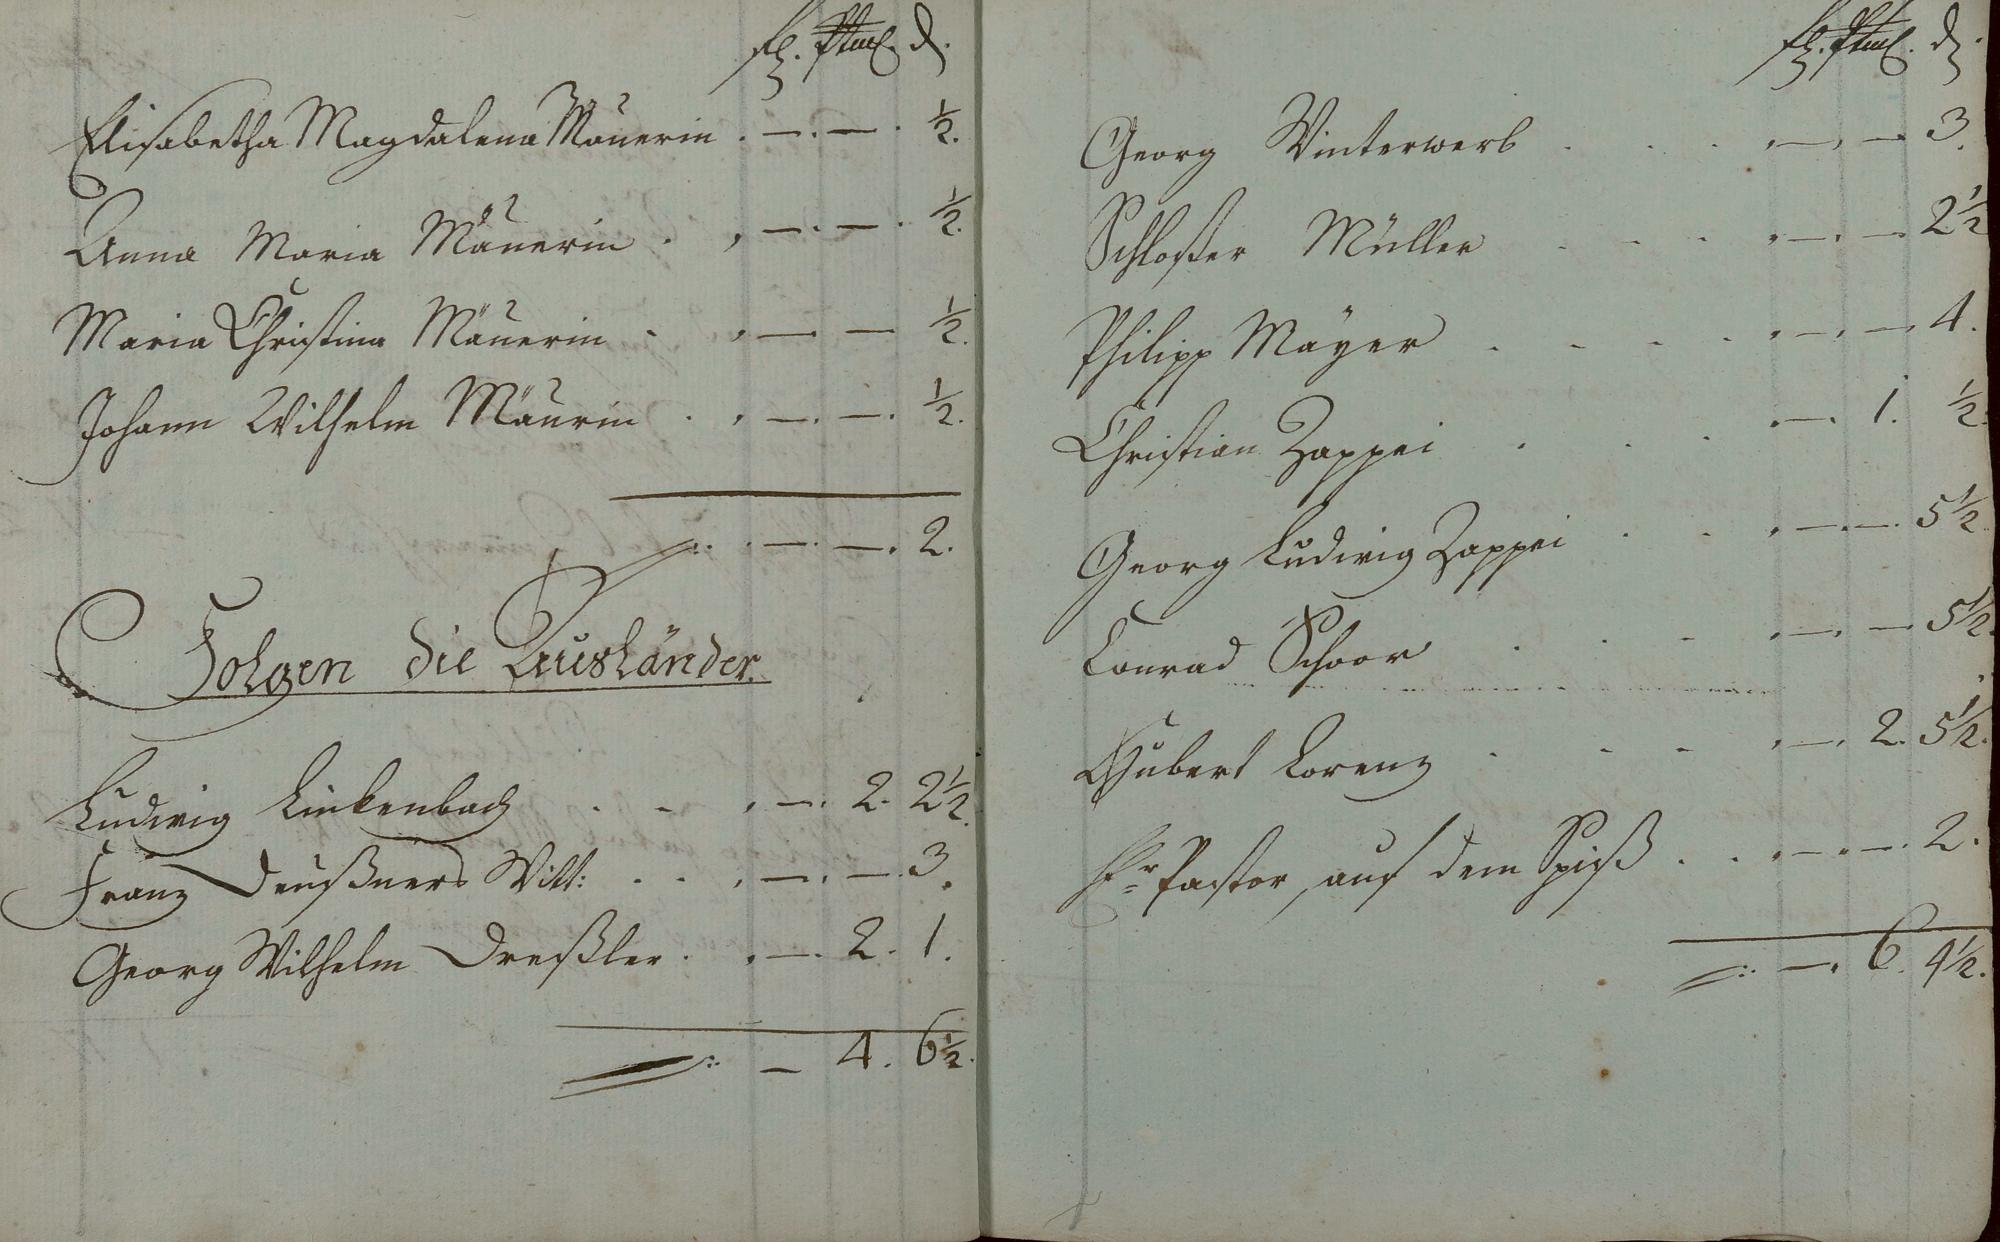 fl. Stüb. d.
Elisabetha Magdalena Mäuerin . . — . — . ½.
Anna Maria Mäuerin . . — . — . ½.
Maria Christina Mäuerin . . — . — ½.
Johann Wilhelm Mäurin . . — . — . ½.
. — . — . 2.
Folgen die Ausländer.
Ludwig Linkenbach . . . — . 2. 2½.
Franz Deußners Witt: . . . — . — . 3.
Georg Wilhelm Dreßler . . — . 2. 1.
— 4. 6½.
fl. d.
Georg Winterwerb . . . . — . — 3.
Schloßer Müller . . . . — . — 2½
Philipp Mäyer . . . . . — . — 4.
Christian Zappei . . . . — . 1. ½.
Georg Ludwig Zappei . . . — . — . 5½
Conrad Schoor . . . . — . — 5½.
Hubert Lorenz . . . . — . 2. 5½.
Hr Pastor, auf dem Spieß . . . — . — . 2.
— . 6. 4½.